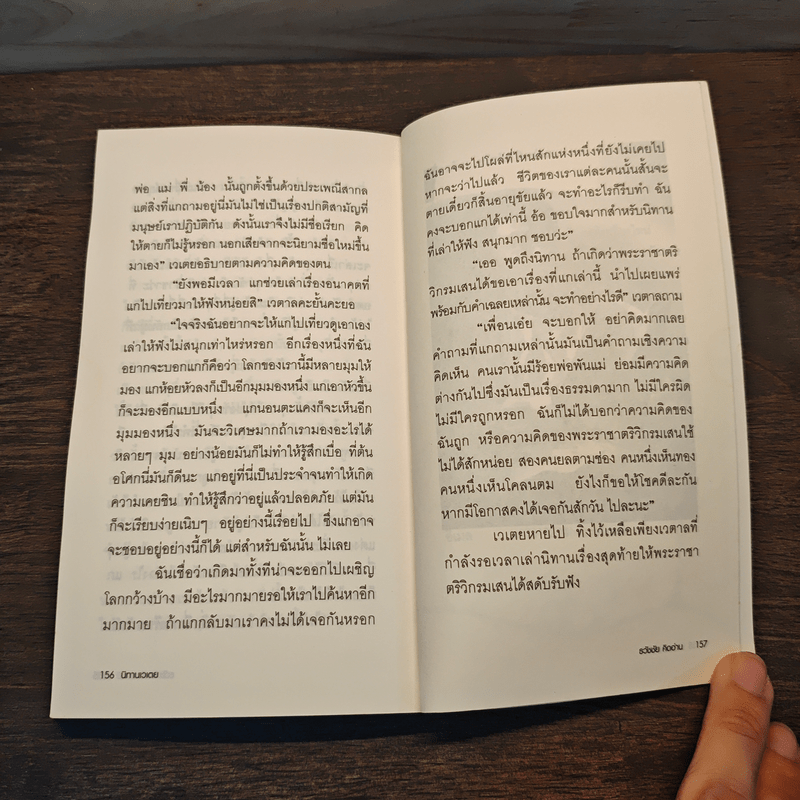 พ่อ แม่ พี่ น้อง นั้นถูกตั้งขึ้นด้วยประเพณีสากล
แต่สิ่งที่แกถามอยู่นี่มันไม่ใช่เป็นเรื่องปกติสามัญที่
มนุษย์เราปฏิบัติกัน ดังนั้นเราจึงไม่มีชื่อเรียก คิด
ให้ตายก็ไม่รู้หรอก นอกเสียจากจะนิยามชื่อใหม่ขึ้น
มาเอง” เวเตยอธิบายตามความคิดของตน
“ยังพอมีเวลา แกช่วยเล่าเรื่องอนาคตที่
แกไปเที่ยวมาให้ฟังหน่อยสิ” เวตาลคะยั้นคะยอ
“ใจจริงฉันอยากจะให้แกไปเที่ยวดูเอาเอง
เล่าให้ฟังไม่สนุกเท่าไหร่หรอก อีกเรื่องหนึ่งที่ฉัน
อยากจะบอกแกก็คือว่า โลกของเรานี้มีหลายมุมให้
มอง แกห้อยหัวลงก็เป็นอีกมุมมองหนึ่ง แกเอาหัวขึ้น
ก็จะมองอีกแบบหนึ่ง แกนอนตะแคงก็จะเห็นอีก
มุมมองหนึ่ง มันจะวิเศษมากถ้าเรามองอะไรได้
หลายๆ มุม อย่างน้อยมันก็ไม่ทำให้รู้สึกเบื่อ ที่ต้น
อโศกนี่มันก็ดีนะ แกอยู่ที่นี่เป็นประจำจนทำให้เกิด
ความเคยชิน ทำให้รู้สึกว่าอยู่แล้วปลอดภัย แต่มัน
ก็จะเรียบง่ายเนิบๆ อยู่อย่างนี้เรื่อยไป ซึ่งแกอาจ
จะชอบอยู่อย่างนี้ก็ได้ แต่สำหรับฉันนั้น ไม่เลย
ฉันเชื่อว่าเกิดมาทั้งทีน่าจะออกไปเผชิญ
โลกกว้างบ้าง มีอะไรมากมายรอให้เราไปค้นหาอีก
มากมาย ถ้าแกกลับมาเราคงไม่ได้เจอกันหรอก
156 นิทานเวเตย
ฉันอาจจะไปโผล่ที่ไหนสักแห่งหนึ่งที่ยังไม่เคยไป
หากจะว่าไปแล้ว ชีวิตของเราแต่ละคนนั้นสั้นจะ
ตายเดี๋ยวก็สิ้นอายุขัยแล้ว จะทำอะไรก็รีบทำ ฉัน
คงจะบอกแกได้เท่านี้ อ้อ ขอบใจมากสำหรับนิทาน
ที่เล่าให้ฟัง สนุกมาก ชอบว่ะ”
“เออ พูดถึงนิทาน ถ้าเกิดว่าพระราชาตรี
วิกรมเสนได้ขอเอาเรื่องที่แกเล่านี้ นำไปเผยแพร่
พร้อมกับคำเฉลยเหล่านั้น จะทำอย่างไรดี” เวตาลถาม
“เพื่อนเอ๋ย จะบอกให้ อย่าคิดมากเลย
คำถามที่แกถามเหล่านั้นมันเป็นคำถามเชิงความ
คิดเห็น คนเรานั้นมีร้อยพ่อพันแม่ ย่อมมีความคิด
ต่างกันไปซึ่งมันเป็นเรื่องธรรมดามาก ไม่มีใครผิด
ไม่มีใครถูกหรอก ฉันก็ไม่ได้บอกว่าความคิดของ
ฉันถูก หรือความคิดของพระราชาตริวิกรมเสนใช้
ไม่ได้สักหน่อย สองคนยลตามช่อง คนหนึ่งเห็นทอง
คนหนึ่งเห็นโคลนตม ยังไงก็ขอให้โชคดีละกัน
หากมีโอกาสคงได้เจอกันสักวัน ไปละนะ”
เวเตยหายไป ทิ้งไว้เหลือเพียงเวตาลที่
กำลังรอเวลาเล่านิทานเรื่องสุดท้ายให้พระราชา
ตริวิกรมเสนได้สดับรับฟัง
ธวัชชัย คิดอ่าน 157